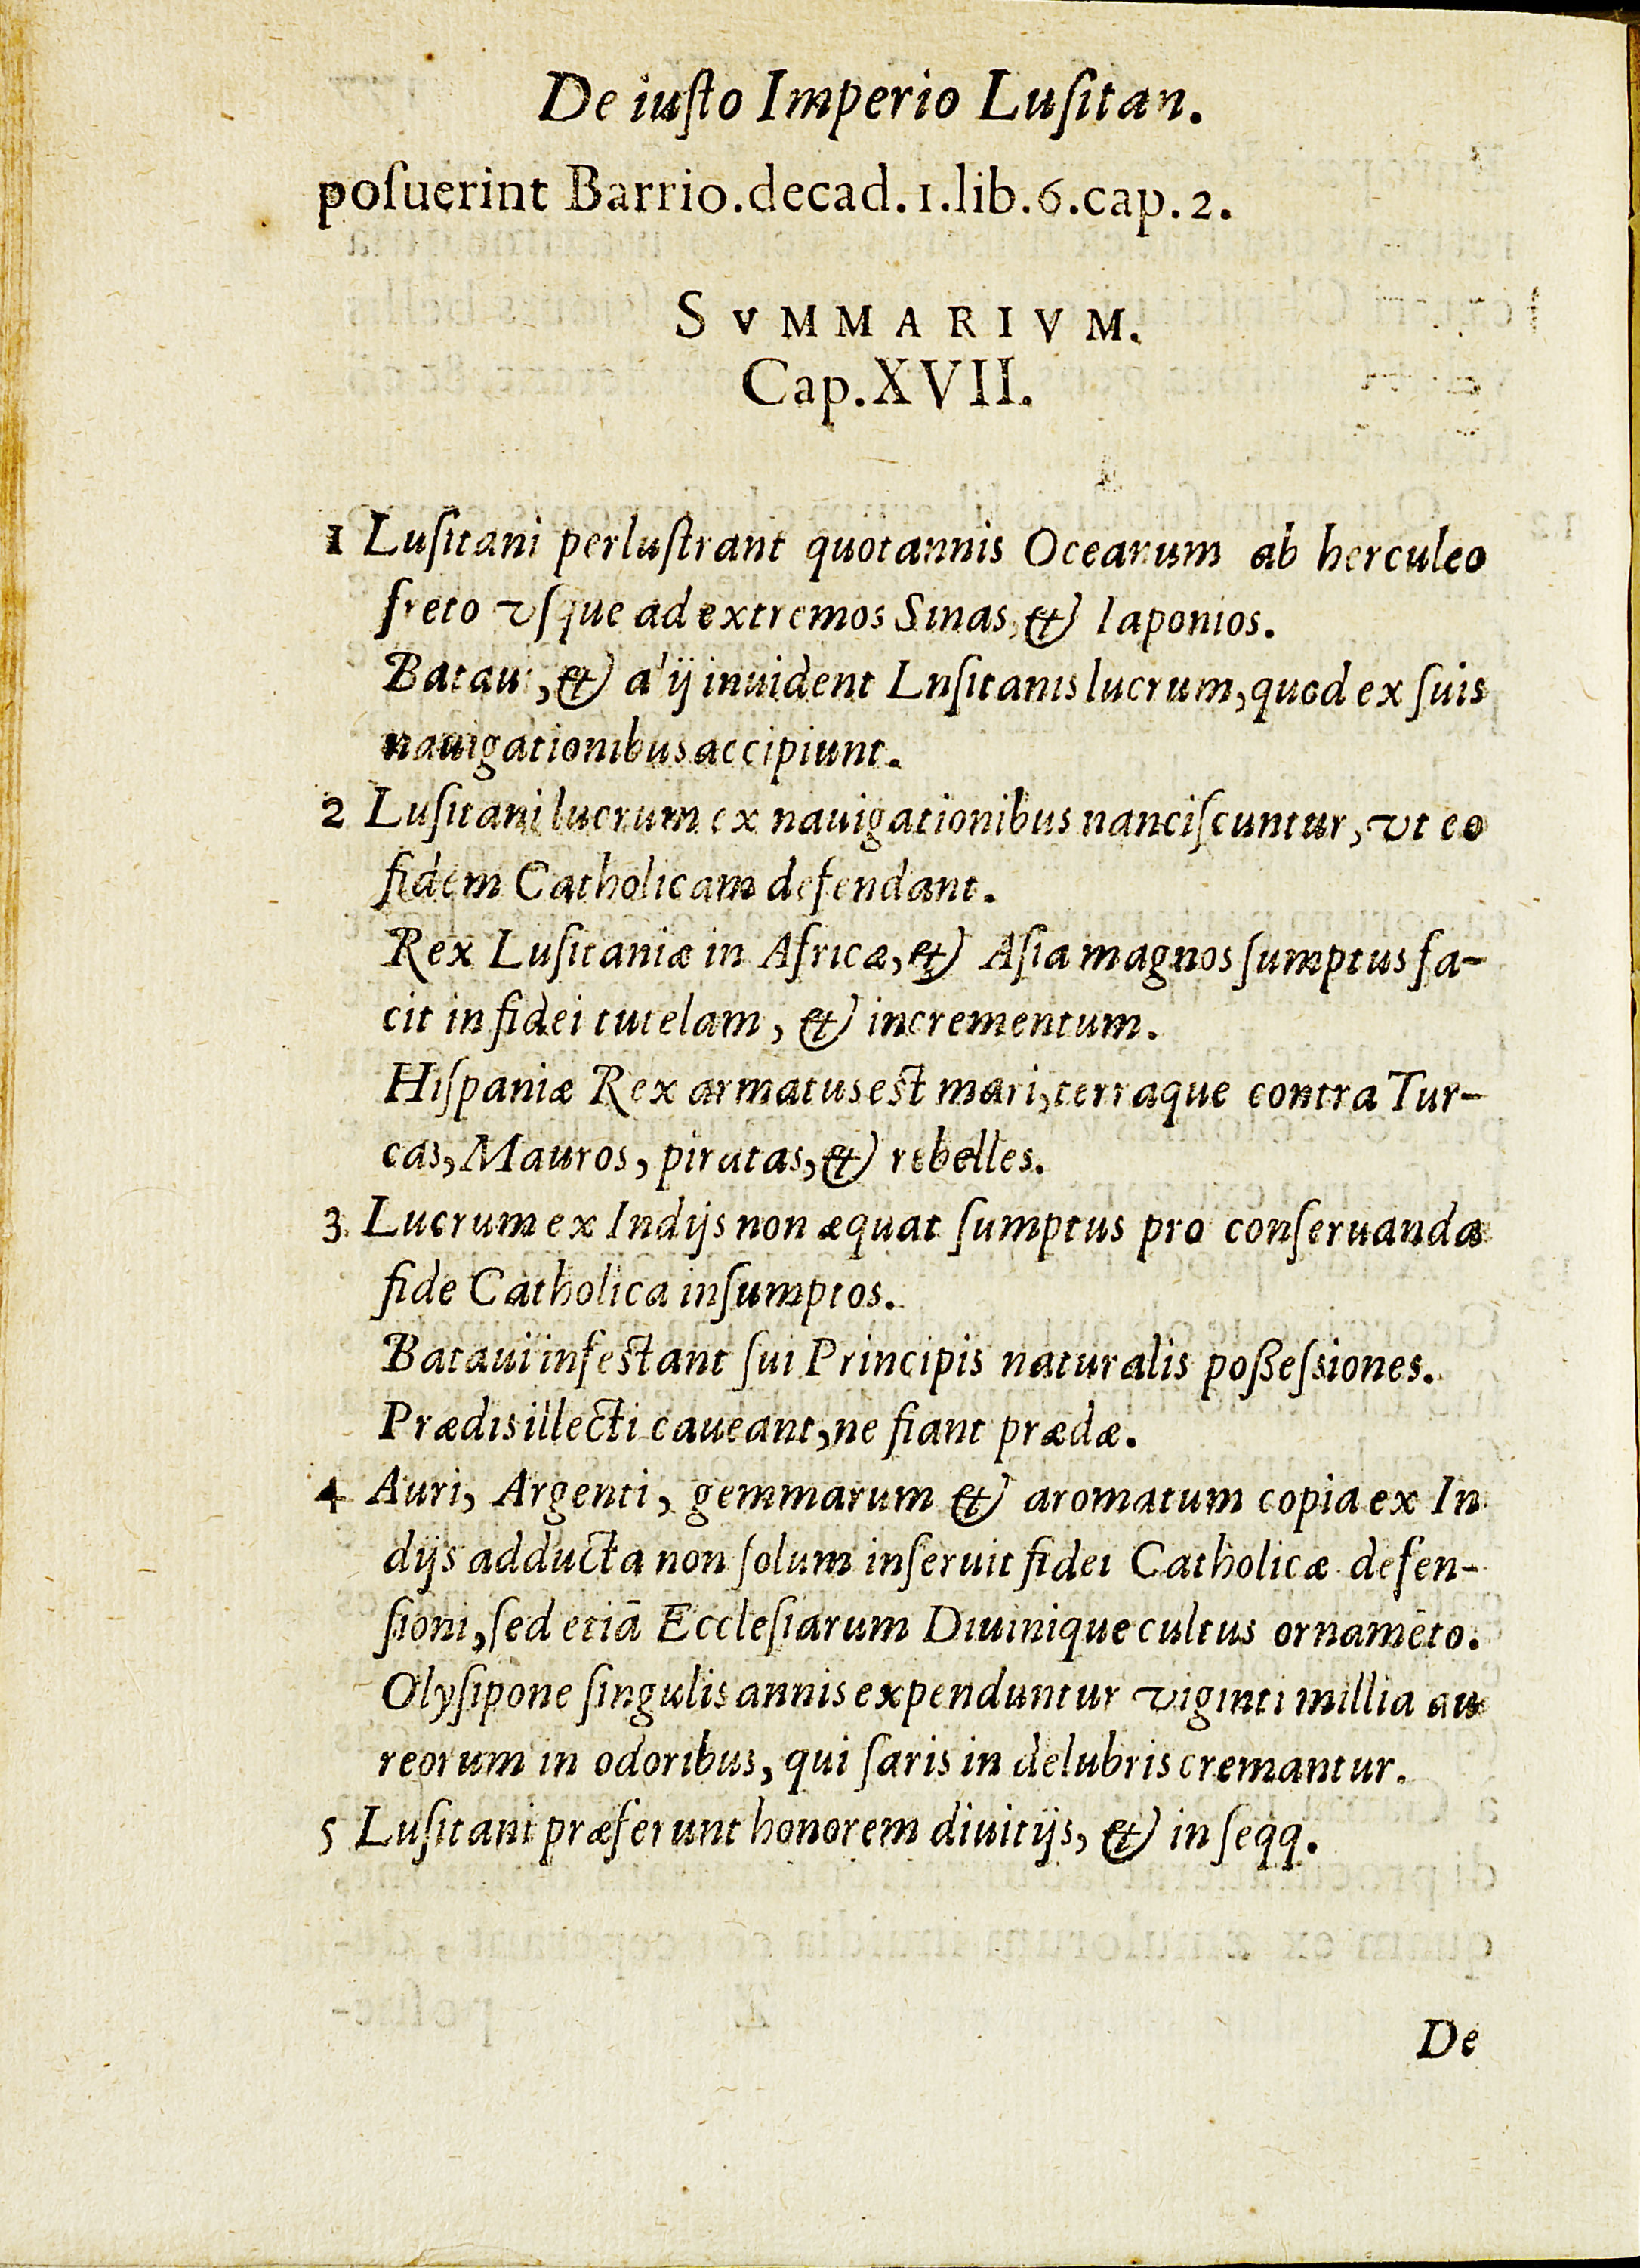 De iuſto Imperio Luſitan.
poſuerint Barrio.decad.1.lib.6.cap.2.
SVMMARIVM.
Cap.XVII.
1 Luſitani perluſtrant quotannis Oceanum ab herculeo
freto vſque ad extremos Sinas, & Iaponios.
Bataui, & alij inuident Lnſitanis lucrum, quod ex ſuis
nauigationibus accipiunt.
2 Luſitani lucrum ex nauigationibus nanciſcuntur, vt eo
fidem Catholicam defendant.
Rex Luſitaniæ in Africæ, & Aſia magnos ſumptus fa-
cit in fidei tutelam, & incrementum.
Hiſpaniæ Rex armatus est mari, terraque contra Tur-
cas, Mauros, piratas, & rebelles.
3 Lucrum ex Indijs non æquat ſumptus pro conſeruanda
fide Catholica inſumptos.
Bataui infestant ſui Principis naturalis poßeſsiones.
Prædis illecti caueant, ne fiant prædæ.
4 Auri, Argenti, gemmarum & aromatum copia ex In
dijs adducta non ſolum inſeruit fidei Catholicæ defen-
ſioni, ſed etiā Eccleſiarum Diuinique cultus ornamēto.
Olyſipone ſingulis annis expenduntur viginti millia au
reorum in odoribus, qui ſaris in delubris cremantur.
5 Luſitani præferunt honorem diuitijs, & in ſeqq.
De